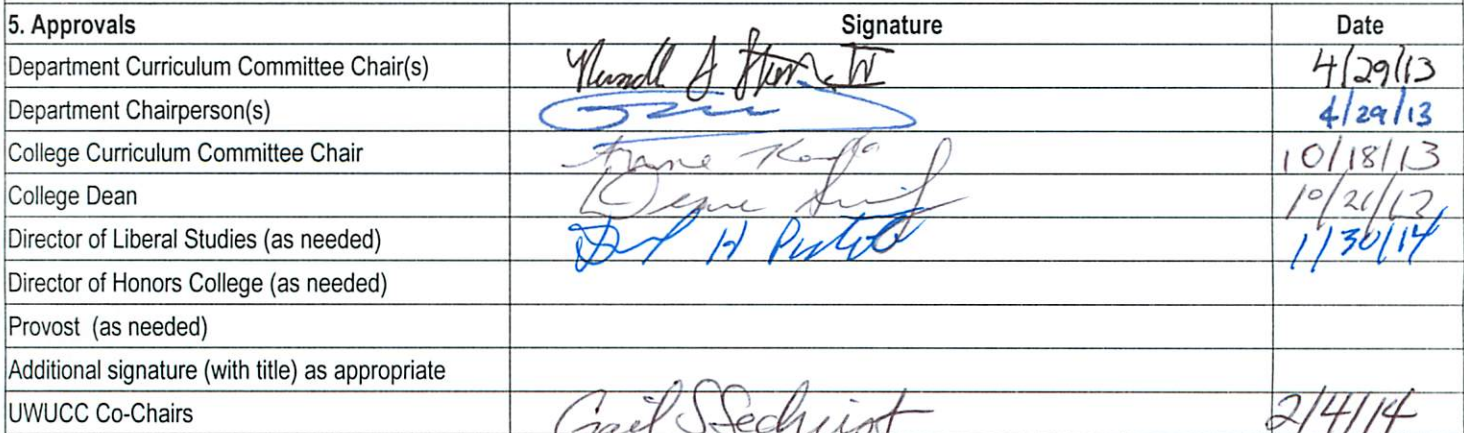 5. Approvals Signature Date
Department Curriculum Committee Chair(s) 4/29/13
Department Chairperson(s) 4/29/13
College Curriculum Committee Chair 10/18/13
College Dean 10/21/13
Director of Liberal Studies (as needed) 1/30/14
Director of Honors College (as needed)
Provost (as needed)
Additional signature (with title) as appropriate
UWUCC Co-Chairs Gail S Sechrist 2/4/14